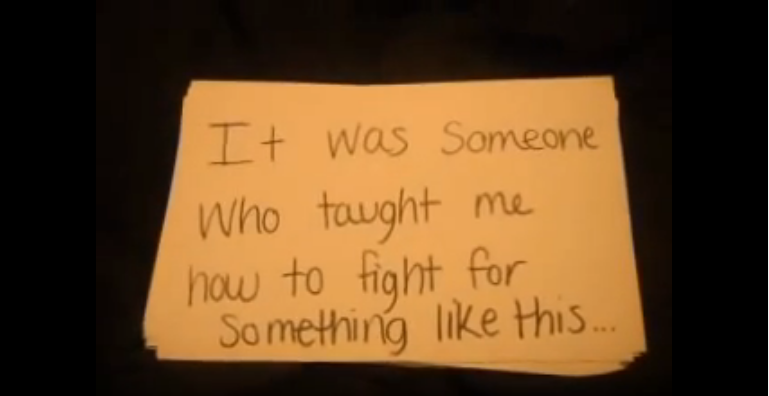 It was Someone
Who taught me
how to fight for
Something like this...